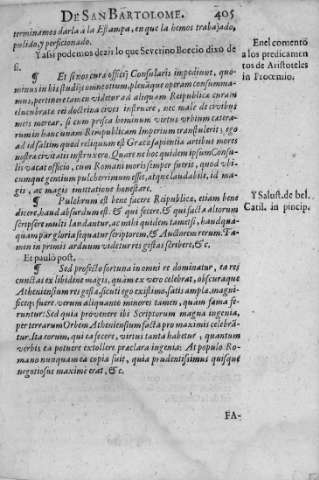 DE SAN BARTOLOME. 405
terminamos darla a la Estampa, en que la hemos trabajado,
pulido, y perficionado.
Y assi podemos dezir lo que Severino Boecio dixo de
si.
¶ Et si nos cura officij Consularis impediunt, quo-
minus in his studijs omne otium, plenáque operam consumma-
mus, pertinere tamen videtur ad aliquam Reipublicae curam
elucubratae rei doctrina cives instruere, nec male de civibus
meis merear, si cum prisca hominum virtus urbium caetera-
rum in hanc unam Rempublicam Imperium transtulerit; ego
ad id saltim quod reliquum est Graecae sapientia artibus mores
nostrae civitatis instruxero. Quare ne hoc quidem ipsum Consu-
lis vacat officio, cum Romani moris semper fuerit, quod ubi-
cumque gentium pulcherrimum esset, atque laudabile, id ma-
gis, ac magis imitatione honestare.
En el comento
a los predicamen
tos de Aristoteles
in Proemio.
¶ Pulchrum est bene facere Reipublica, etiam bene
dicere, haud absurdum est. & qui fecere, & qui facta aliorum
scripsere multi laudantur, ac mihi quidem tametsi, haudqua-
quam par gloria sequatur scriptorem, & Auctorem rerum. Ta-
men in primis arduum videtur res gestas scribere, &c.
Y Salust. de bel.
Catil. in princip.
Et paulò post.
¶ Sed profecto fortuna in omni re dominatur, ea res
cunctas ex libidine magis, quàm ex vero celebrat, obscuraque
Atheniensium res gestae, sicuti ego existimo, satis amplae, magni-
ficaeque fuere. verum aliquanto minores tamen, quam fama fe-
runtur: Sed quia provenere ibi Scriptorum magna ingenia,
per terrarum Orbem Atheniensium facta pro maximis celebrã-
tur. Ita eorum, qui ea fecere, virtus tanta habetur, quantum
verbis ea potuere extollere praeclara ingenia: At populo Ro-
mano nunquam ea copia fuit, quia prudentissimus quisque
negotiosus maximè erat, &c.
FA-